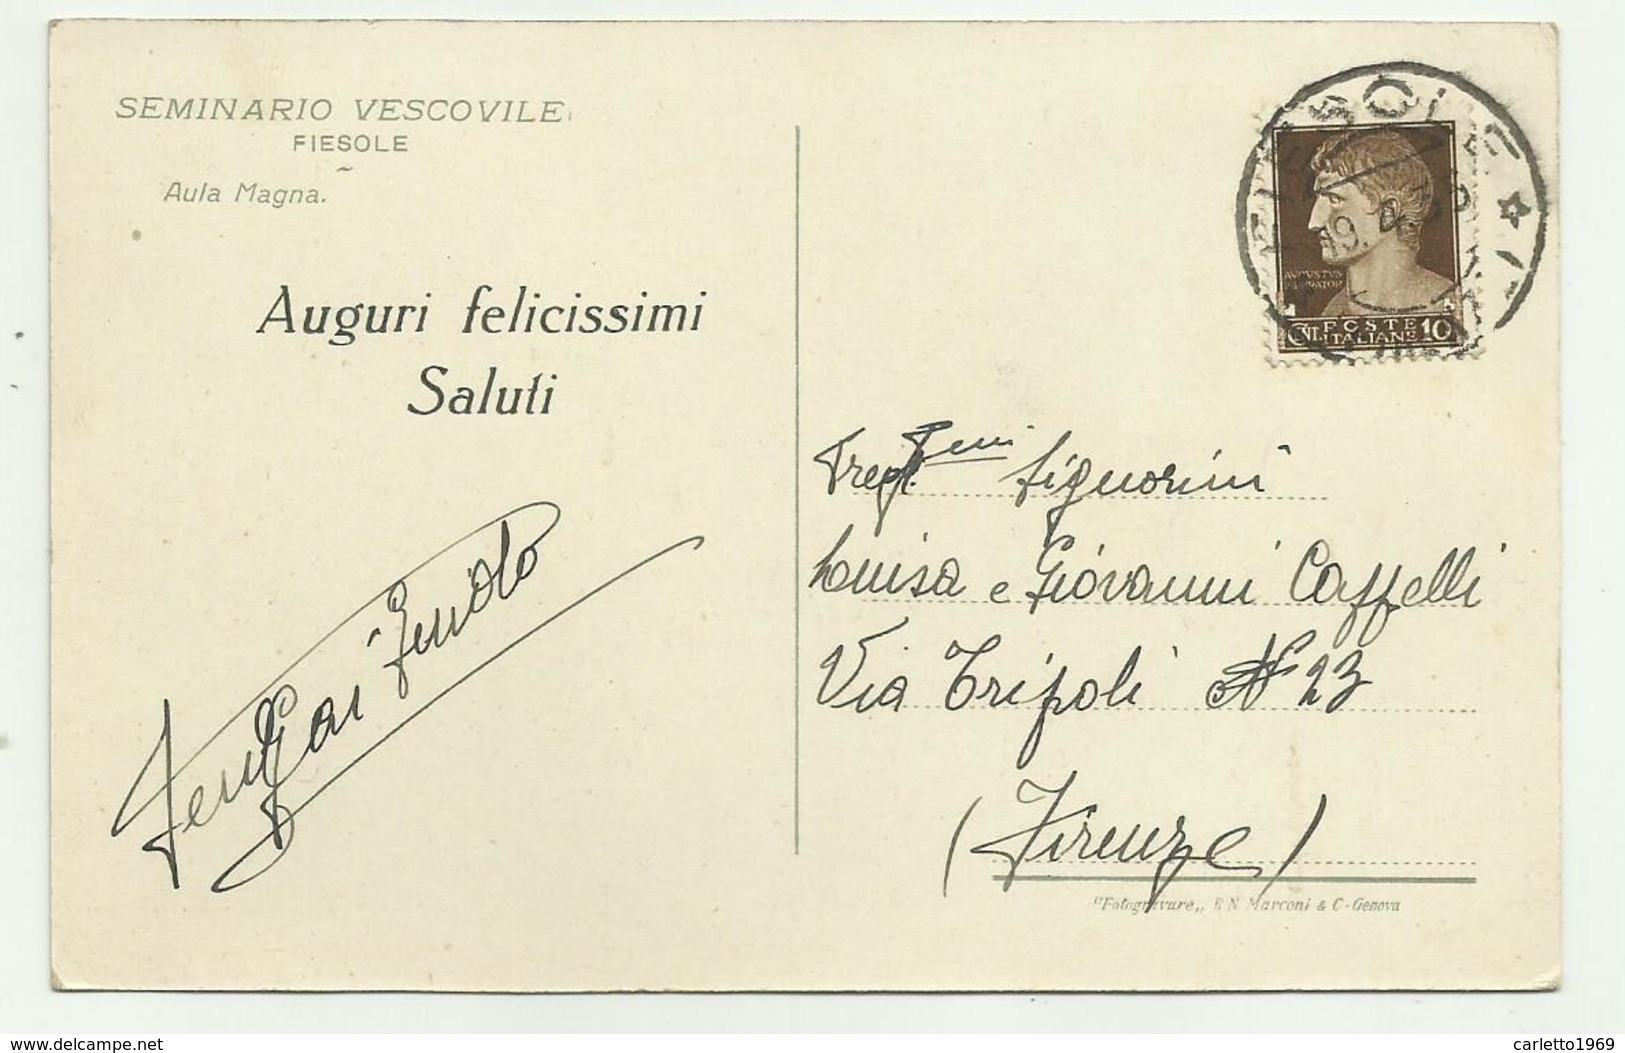 SEMINARIO VESCOVILE
FIESOLE
Aula Magna.
Auguri felicissimi
Saluti
FIESOLE
19.
AVGVSTVS
CENT. POSTE 10
ITALIANE
Signorini
Luisa e Giovanni Caffelli
Via Tripoli N 23
(Firenze)
"Fotogravure„ B. N. Marconi & C - Genova
www.delcampe.net
carletto1969